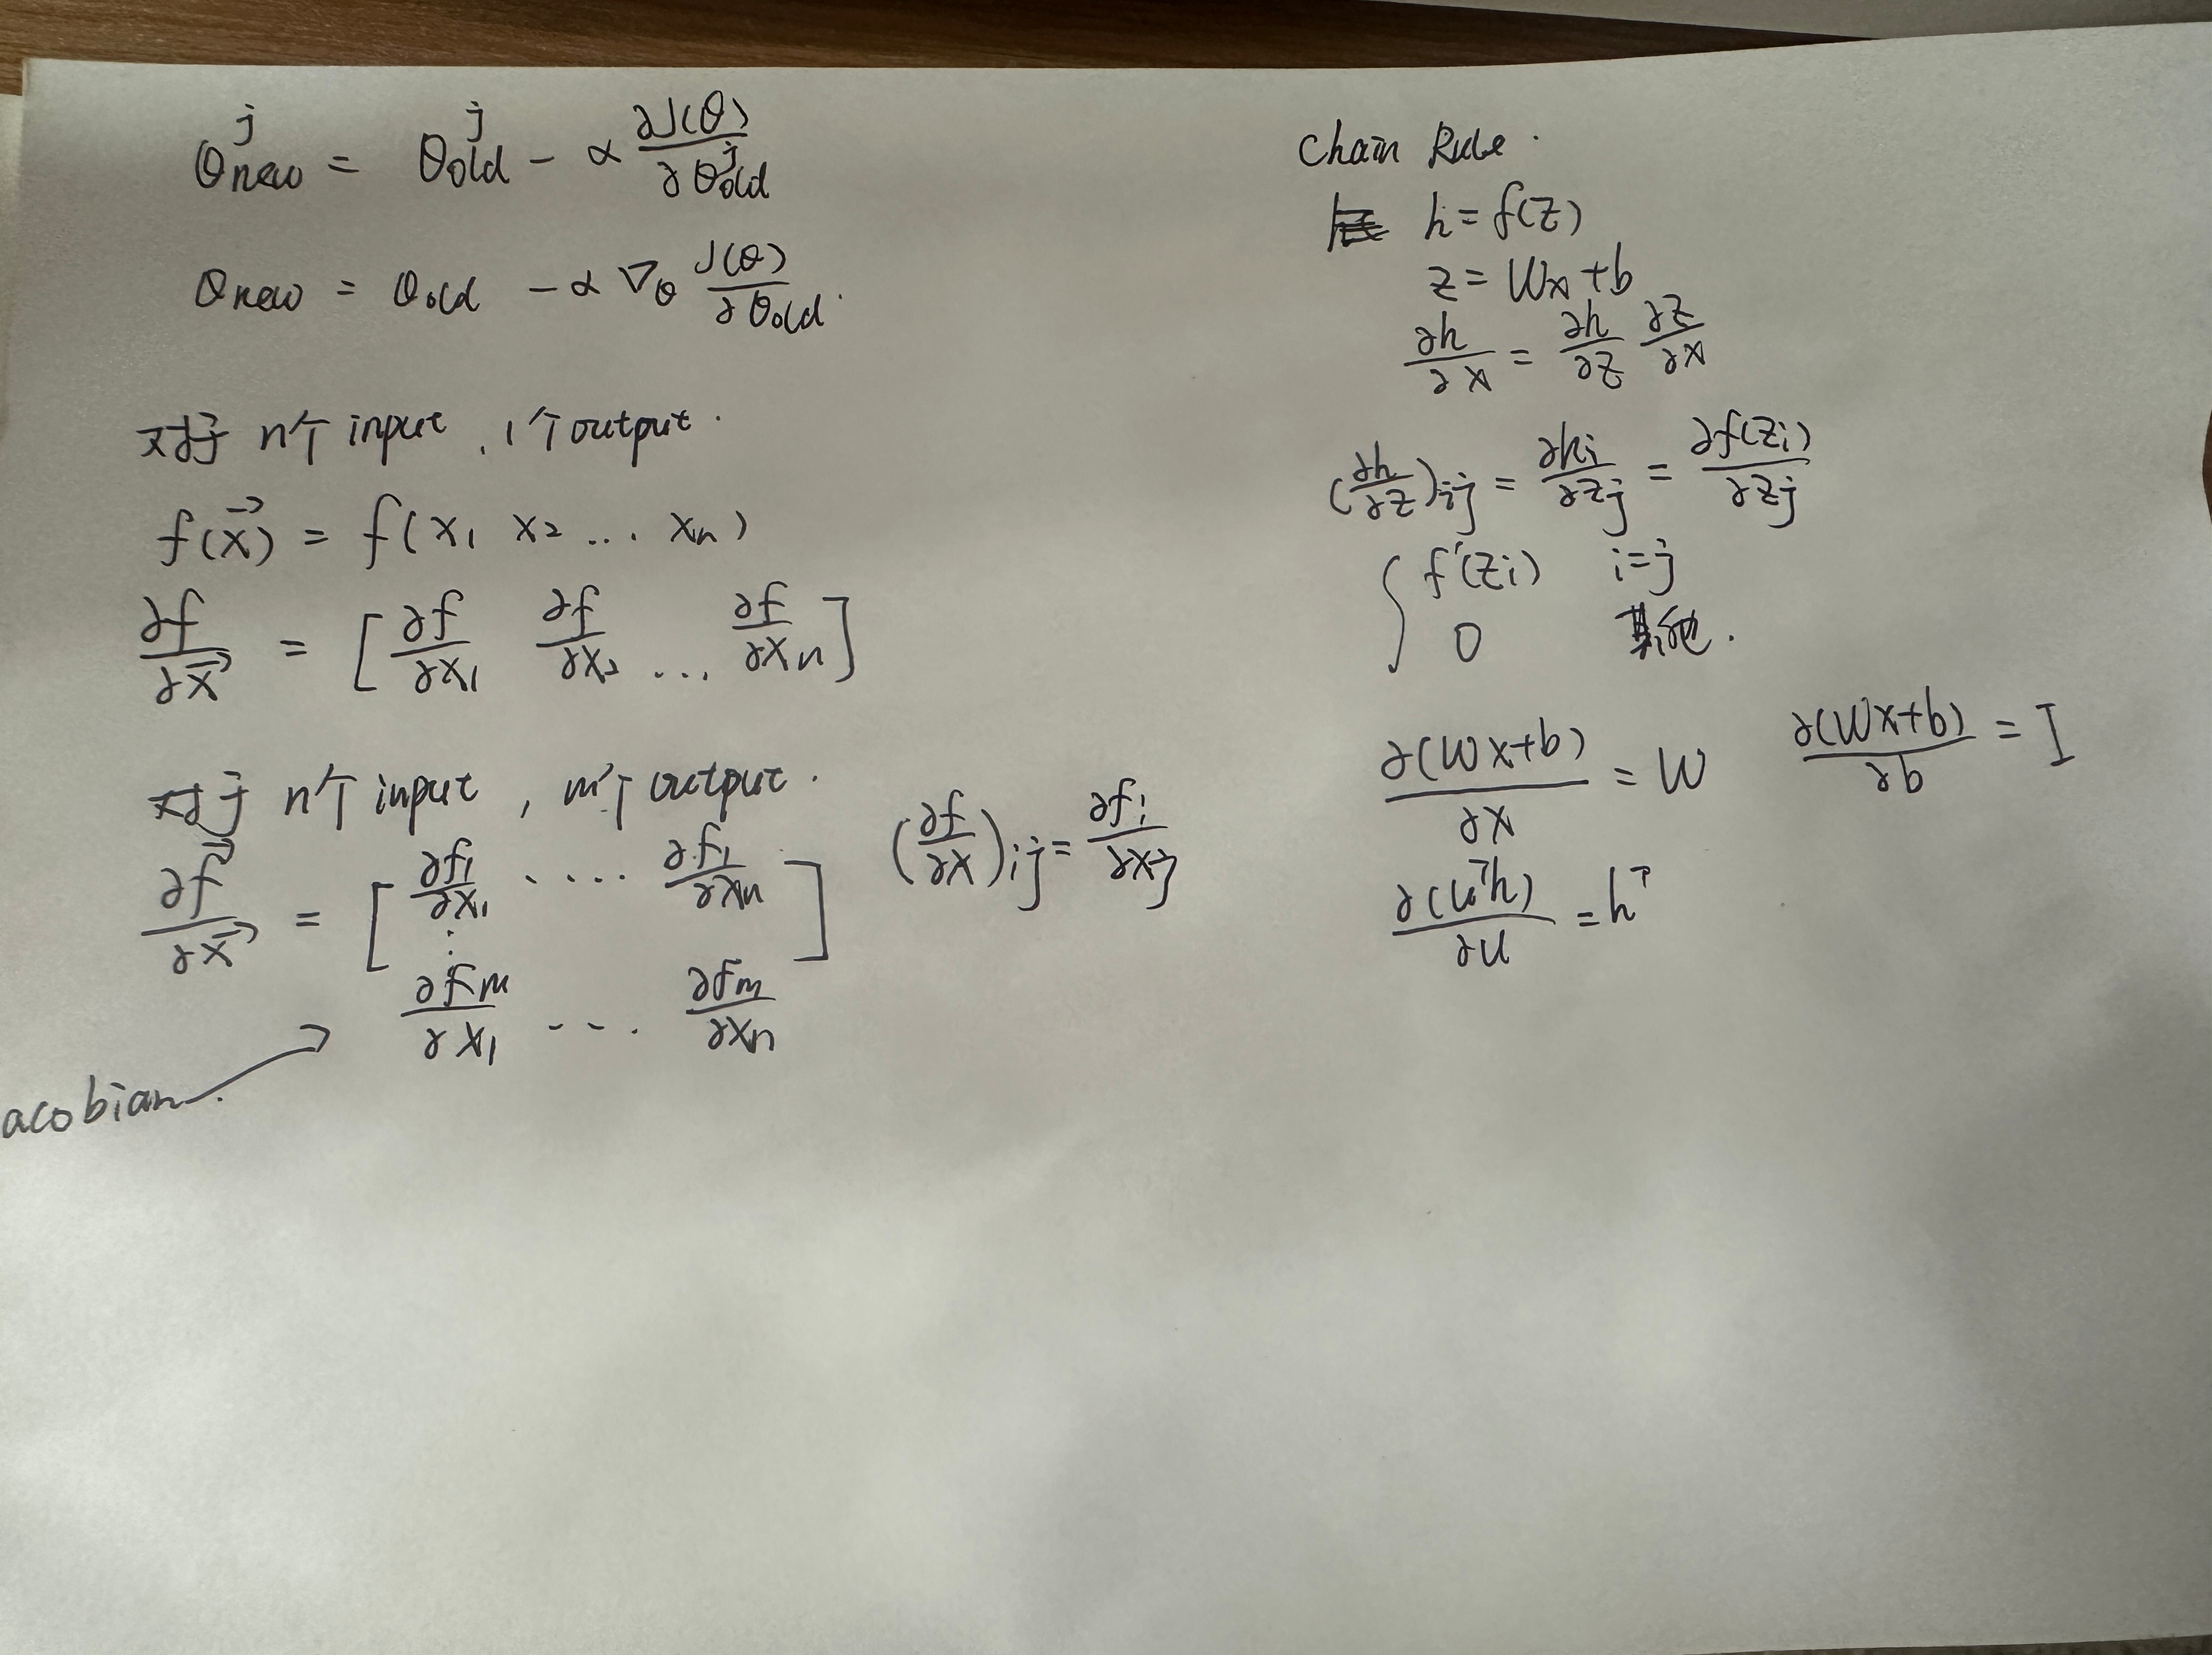 θnew^j = θold^j - α ∂J(θ)/∂θold^j
θnew = θold - α ∇θ J(θ)/∂θold.
对于 n个 input, 1个 output.
f(x⃗) = f(x₁ x₂ ... xₙ)
∂f/∂x⃗ = [∂f/∂x₁ ∂f/∂x₂ ... ∂f/∂xₙ]
对于 n个 input, m个 output.
∂f⃗/∂x⃗ = [∂f₁/∂x₁ .... ∂f₁/∂xₙ] (∂f/∂x)ij = ∂fi/∂xj
⋮
∂fm/∂x₁ ... ∂fm/∂xₙ
acobian.
Chain Rule.
h = f(z)
z = Wx + b
∂h/∂x = ∂h/∂z ∂z/∂x
(∂h/∂z)ij = ∂hi/∂zj = ∂f(zi)/∂zj
{ f'(zi) i=j
0 其他.
∂(Wx+b)/∂x = W ∂(Wx+b)/∂b = I
∂(uᵀh)/∂u = hᵀ